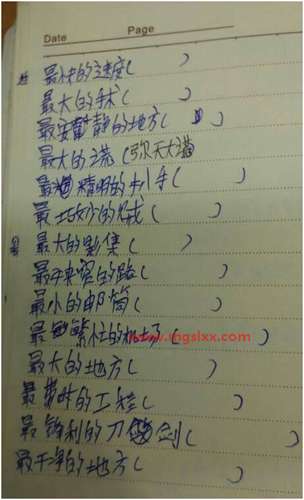 Date Page
最快的速度( )
最大的手术( )
最安静的地方( )
最大的谎(弥天大谎
最精明的扒手( )
最巧妙的贼( )
最大的影集( )
最平安的路( )
最小的邮筒( )
最繁忙的机场( )
www.mgslxx.com
最大的地方( )
最费时的工程( )
最锋利的刀剑( )
最干净的地方( )